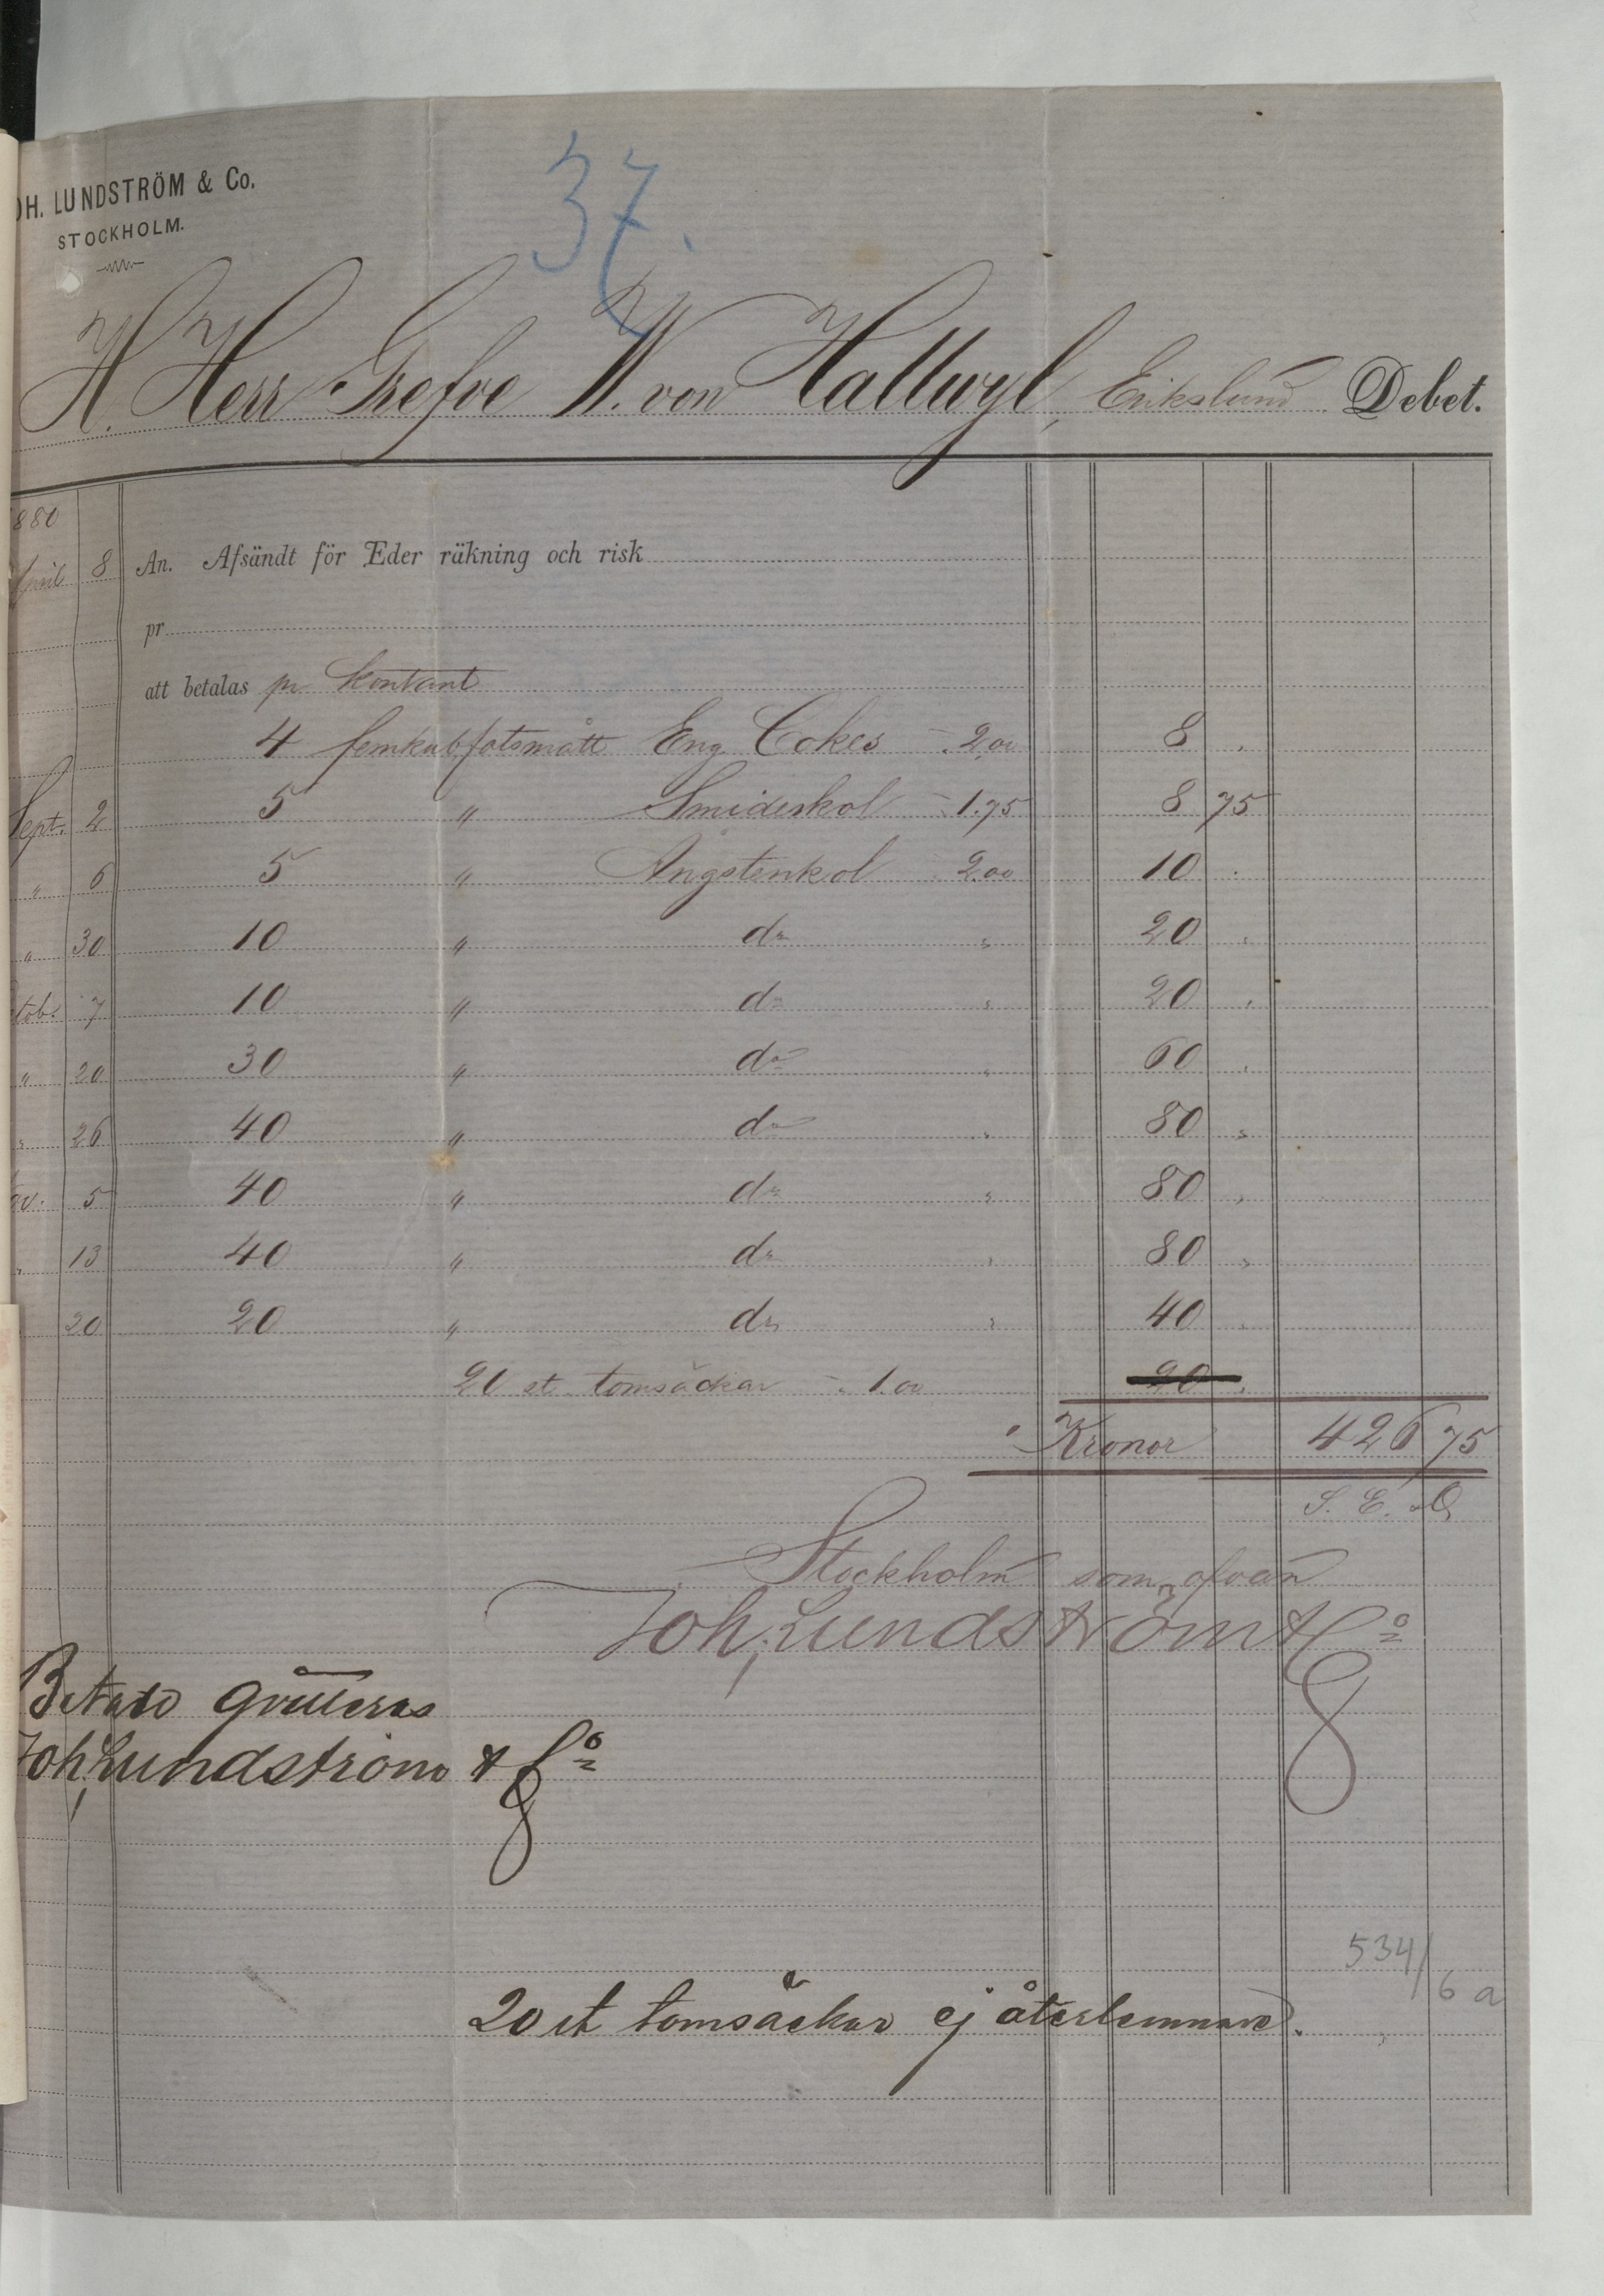 OH. LUNDSTRÖM & Co.
STOCKHOLM.
37.
H. Herr Grefve W. von Hallwyl, Erikslund Debet.
880
April 8 An. Afsändt för Eder räkning och risk
pr
att betalas pr kontant
4 femkubfotsmått Eng. Cokes 2.00 8 .
Sept. 2 5 " Smideskol 1.75 8 75
" 6 5 " Ångstenkol 2.00 10 .
" 30 10 " do " 20 .
tob. 7 10 " do " 20 .
" 20 30 " do " 60 .
" 26 40 " do " 80 "
ov. 5 40 " do " 80 "
" 13 40 " do " 80 "
20 20 " do " 40 .
20 st tomsäckar 1.00 20 .
Kronor 426 75
S. E. & O.
Stockholm som ofvan
Joh. Lundström & Co
Betald qvitteras
Joh. Lundström & Co
534/
6 a
20 st tomsäckar ej återlemnade.